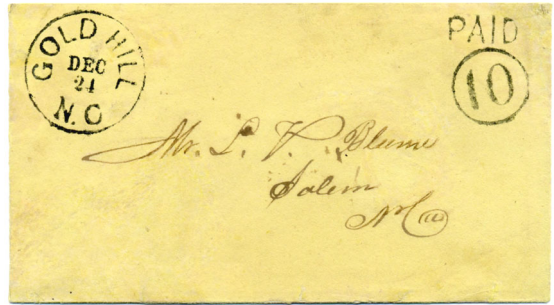 GOLD HILL
DEC
24
N.C
PAID
10
Mr. L. V. Blume
Salem
N Ca